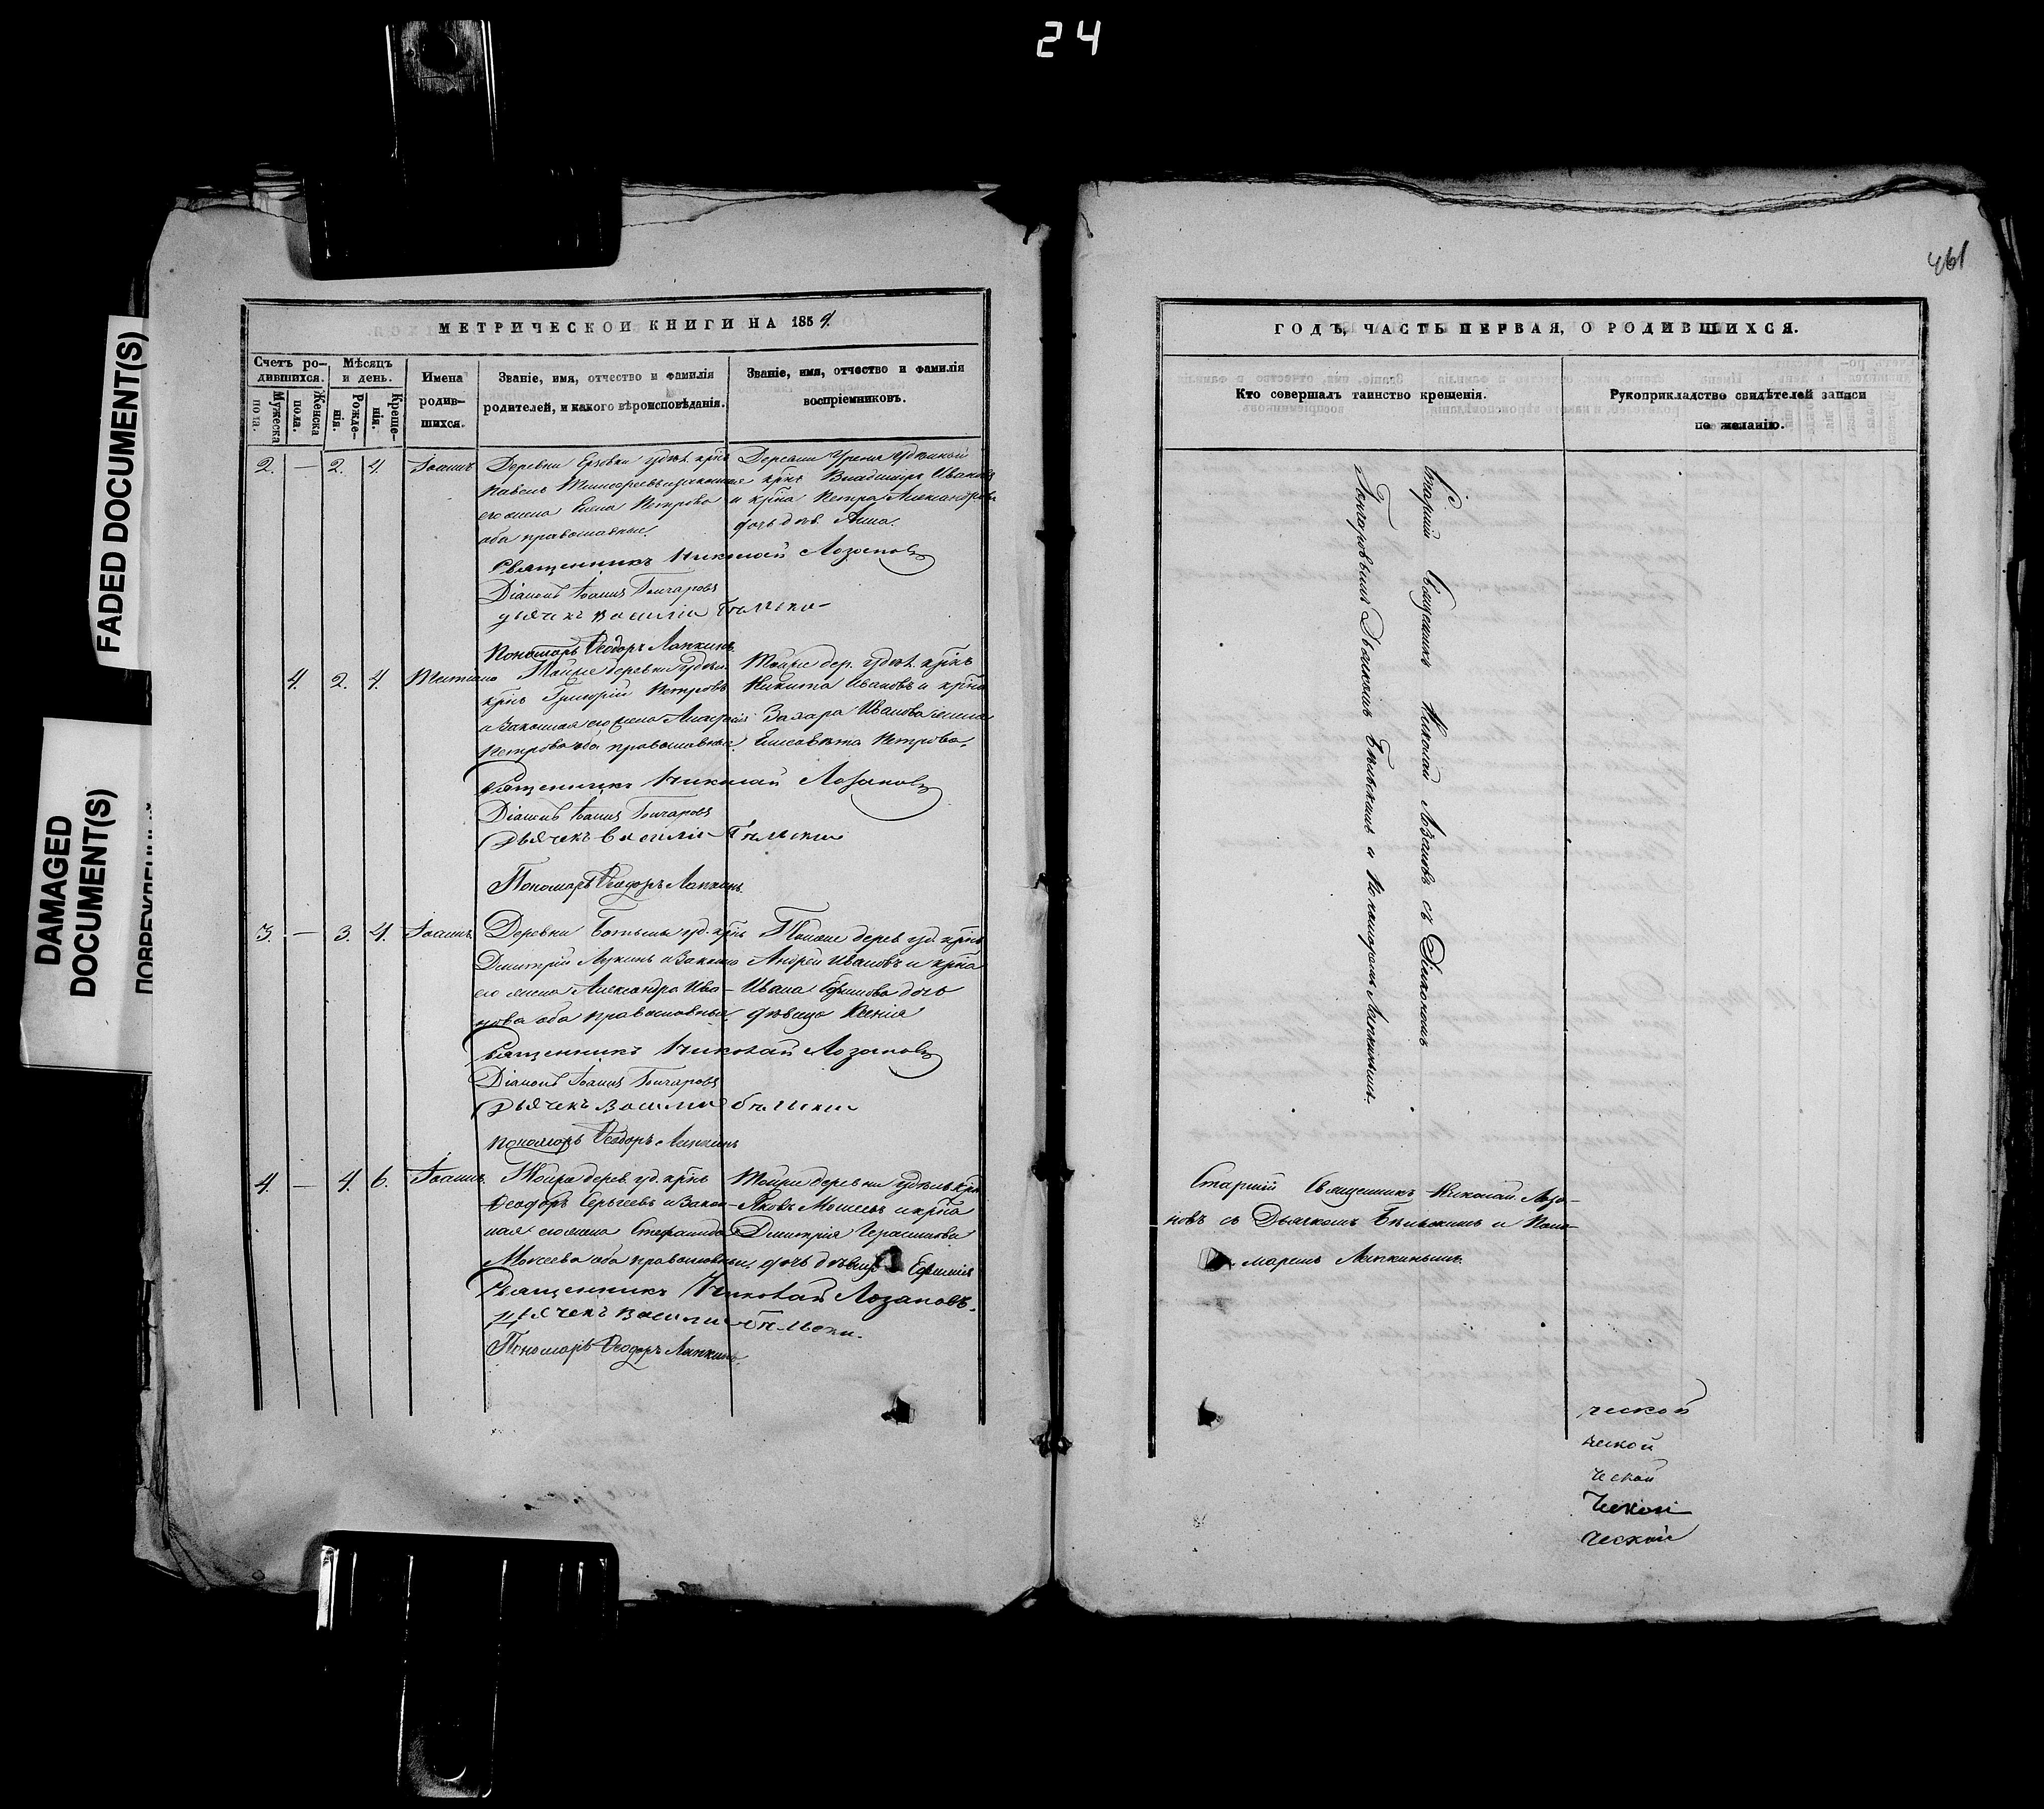 24
461
FADED DOCUMENT(S)
DAMAGED
DOCUMENT(S)
МЕТРИЧЕСКОИ КНИГИ НА 1859.
Счетъ ро-
дившихся.
Мѣсяцъ
и день.
Имена
родив-
шихся.
Званіе, имя, отчество и фамилія
родителей, и какого вѣроисповѣданія.
Званіе, имя, отчество и фамилія
воспріемниковъ.
Мужеска
пола.
Женска
пола.
Рожде-
нія.
Креще-
нія.
2. — 2. 4. Іоаннъ Деревни удѣл. крнъ
Павелъ
его жена Елена Петрова
оба православные.
Деревни удѣльной
крнъ Владиміръ Ивановъ
и крна Петра Александрова
дочь дѣв. Анна.
Священникъ Николай Лозановъ
Діаконъ Іоаннъ Гончаровъ
дьячекъ Василій Бѣльски
Пономарь Ѳеодоръ Лапкинъ
4. 2. 4. Тойже деревни удѣл.
крнъ Григорій Петровъ
и законная его жена
Петрова оба православные.
Тойже дер. удѣл. крнъ
Никита Ивановъ и крна
Захара Иванова жена
Елисавета Петрова.
Священникъ Николай Лозановъ
Діаконъ Іоаннъ Гончаровъ
Дьячекъ Василій Бѣльски
Пономарь Ѳеодоръ Лапкинъ
3. — 3. 4. Іоаннъ Деревни уд. крнъ
Дмитрій Лукинъ и законная
его жена Александра Ива-
нова оба православные
Тойже дерев. уд. крнъ
Андрей Ивановъ и крна
Ивана Ефимова дочь
дѣвица Ксенія
Священникъ Николай Лозановъ
Діаконъ Іоаннъ Гончаровъ
Дьячекъ Василій Бѣльски
Пономарь Ѳеодоръ Лапкинъ
4. — 4. 6. Іоаннъ Тойже дерев. уд. крнъ
Ѳеодоръ Сергѣевъ и закон-
ная его жена Стефанида
Моисеева оба православные.
Тойже деревни удѣль. крнъ
Яковъ Моисеевъ и крна
Дмитрія Герасимова
дочь дѣвица Ефимія
Священникъ Николай Лозановъ.
Дьячекъ Василій Бѣльски.
Пономарь Ѳеодоръ Лапкинъ.
ГОДЪ, ЧАСТЬ ПЕРВАЯ, О РОДИВШИХСЯ.
Кто совершалъ таинство крещенія.
Рукоприкладство свидѣтелей записи
по желанію.
Старшій Священникъ Николай Лозановъ съ Діакономъ
Гончаровымъ Дьячкомъ Бѣльскимъ и Пономаремъ Лапкинымъ.
Старшій Священникъ Николай Лоза-
новъ съ Дьячкомъ Бѣльскимъ и Поно-
маремъ Лапкинымъ.
ческой
ческой
ческой
ческой
ческой